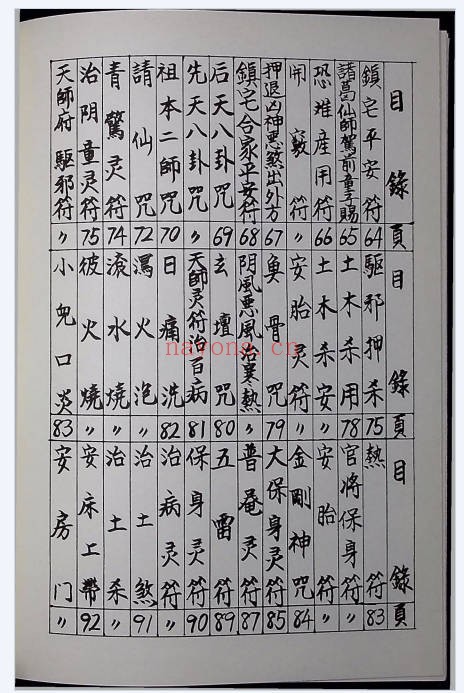 目錄 頁
鎮宅平安符 64
諸葛仙師駕前童子賜 65
恐难産用符 66
開竅符 〃
押退凶神恶煞出外方 67
鎮宅合家平安符 68
后天八卦咒 69
先天八卦咒 〃
祖本二師咒 70
請仙咒 72
青驚灵符 74
治阴童灵符 75
天師府驅邪符 〃
目錄 頁
驅邪押杀 75
土木杀用 78
土木杀安 〃
安胎灵符 〃
魚骨咒 79
阴風恶風治寒熱 〃
玄壇咒 80
天師灵符治百病 81
日痛洗 82
湯火泡 〃
滾水燒 〃
彼火燒 〃
小兒口炎 83
目錄 頁
熱符 83
官將保身符 〃
安胎符 〃
金剛神咒 84
大保身灵符 85
普庵灵符 87
五雷符 89
保身灵符 90
治病灵符 〃
治土煞 91
治土杀 〃
安床上帶 92
安房门 〃
nayong.cn